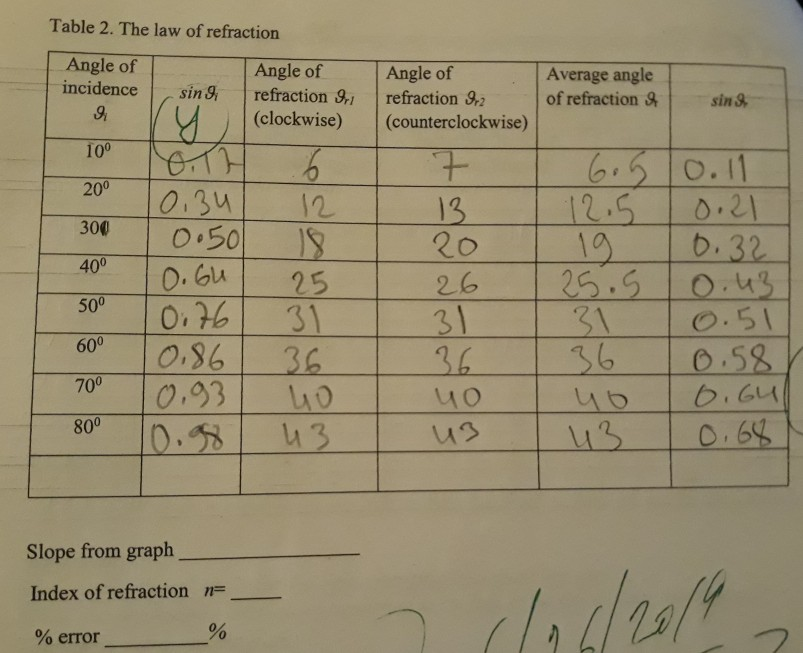 Table 2. The law of refraction
Angle of incidence ϑi | sin ϑi y | Angle of refraction ϑr1 (clockwise) | Angle of refraction ϑr2 (counterclockwise) | Average angle of refraction ϑr | sin ϑr
10⁰ 0.17 6 7 6.5 0.11
20⁰ 0.34 12 13 12.5 0.21
30⁰ 0.50 18 20 19 0.32
40⁰ 0.64 25 26 25.5 0.43
50⁰ 0.76 31 31 31 0.51
60⁰ 0.86 36 36 36 0.58
70⁰ 0.93 40 40 40 0.64
80⁰ 0.98 43 43 43 0.68
Slope from graph
Index of refraction n=
% error %